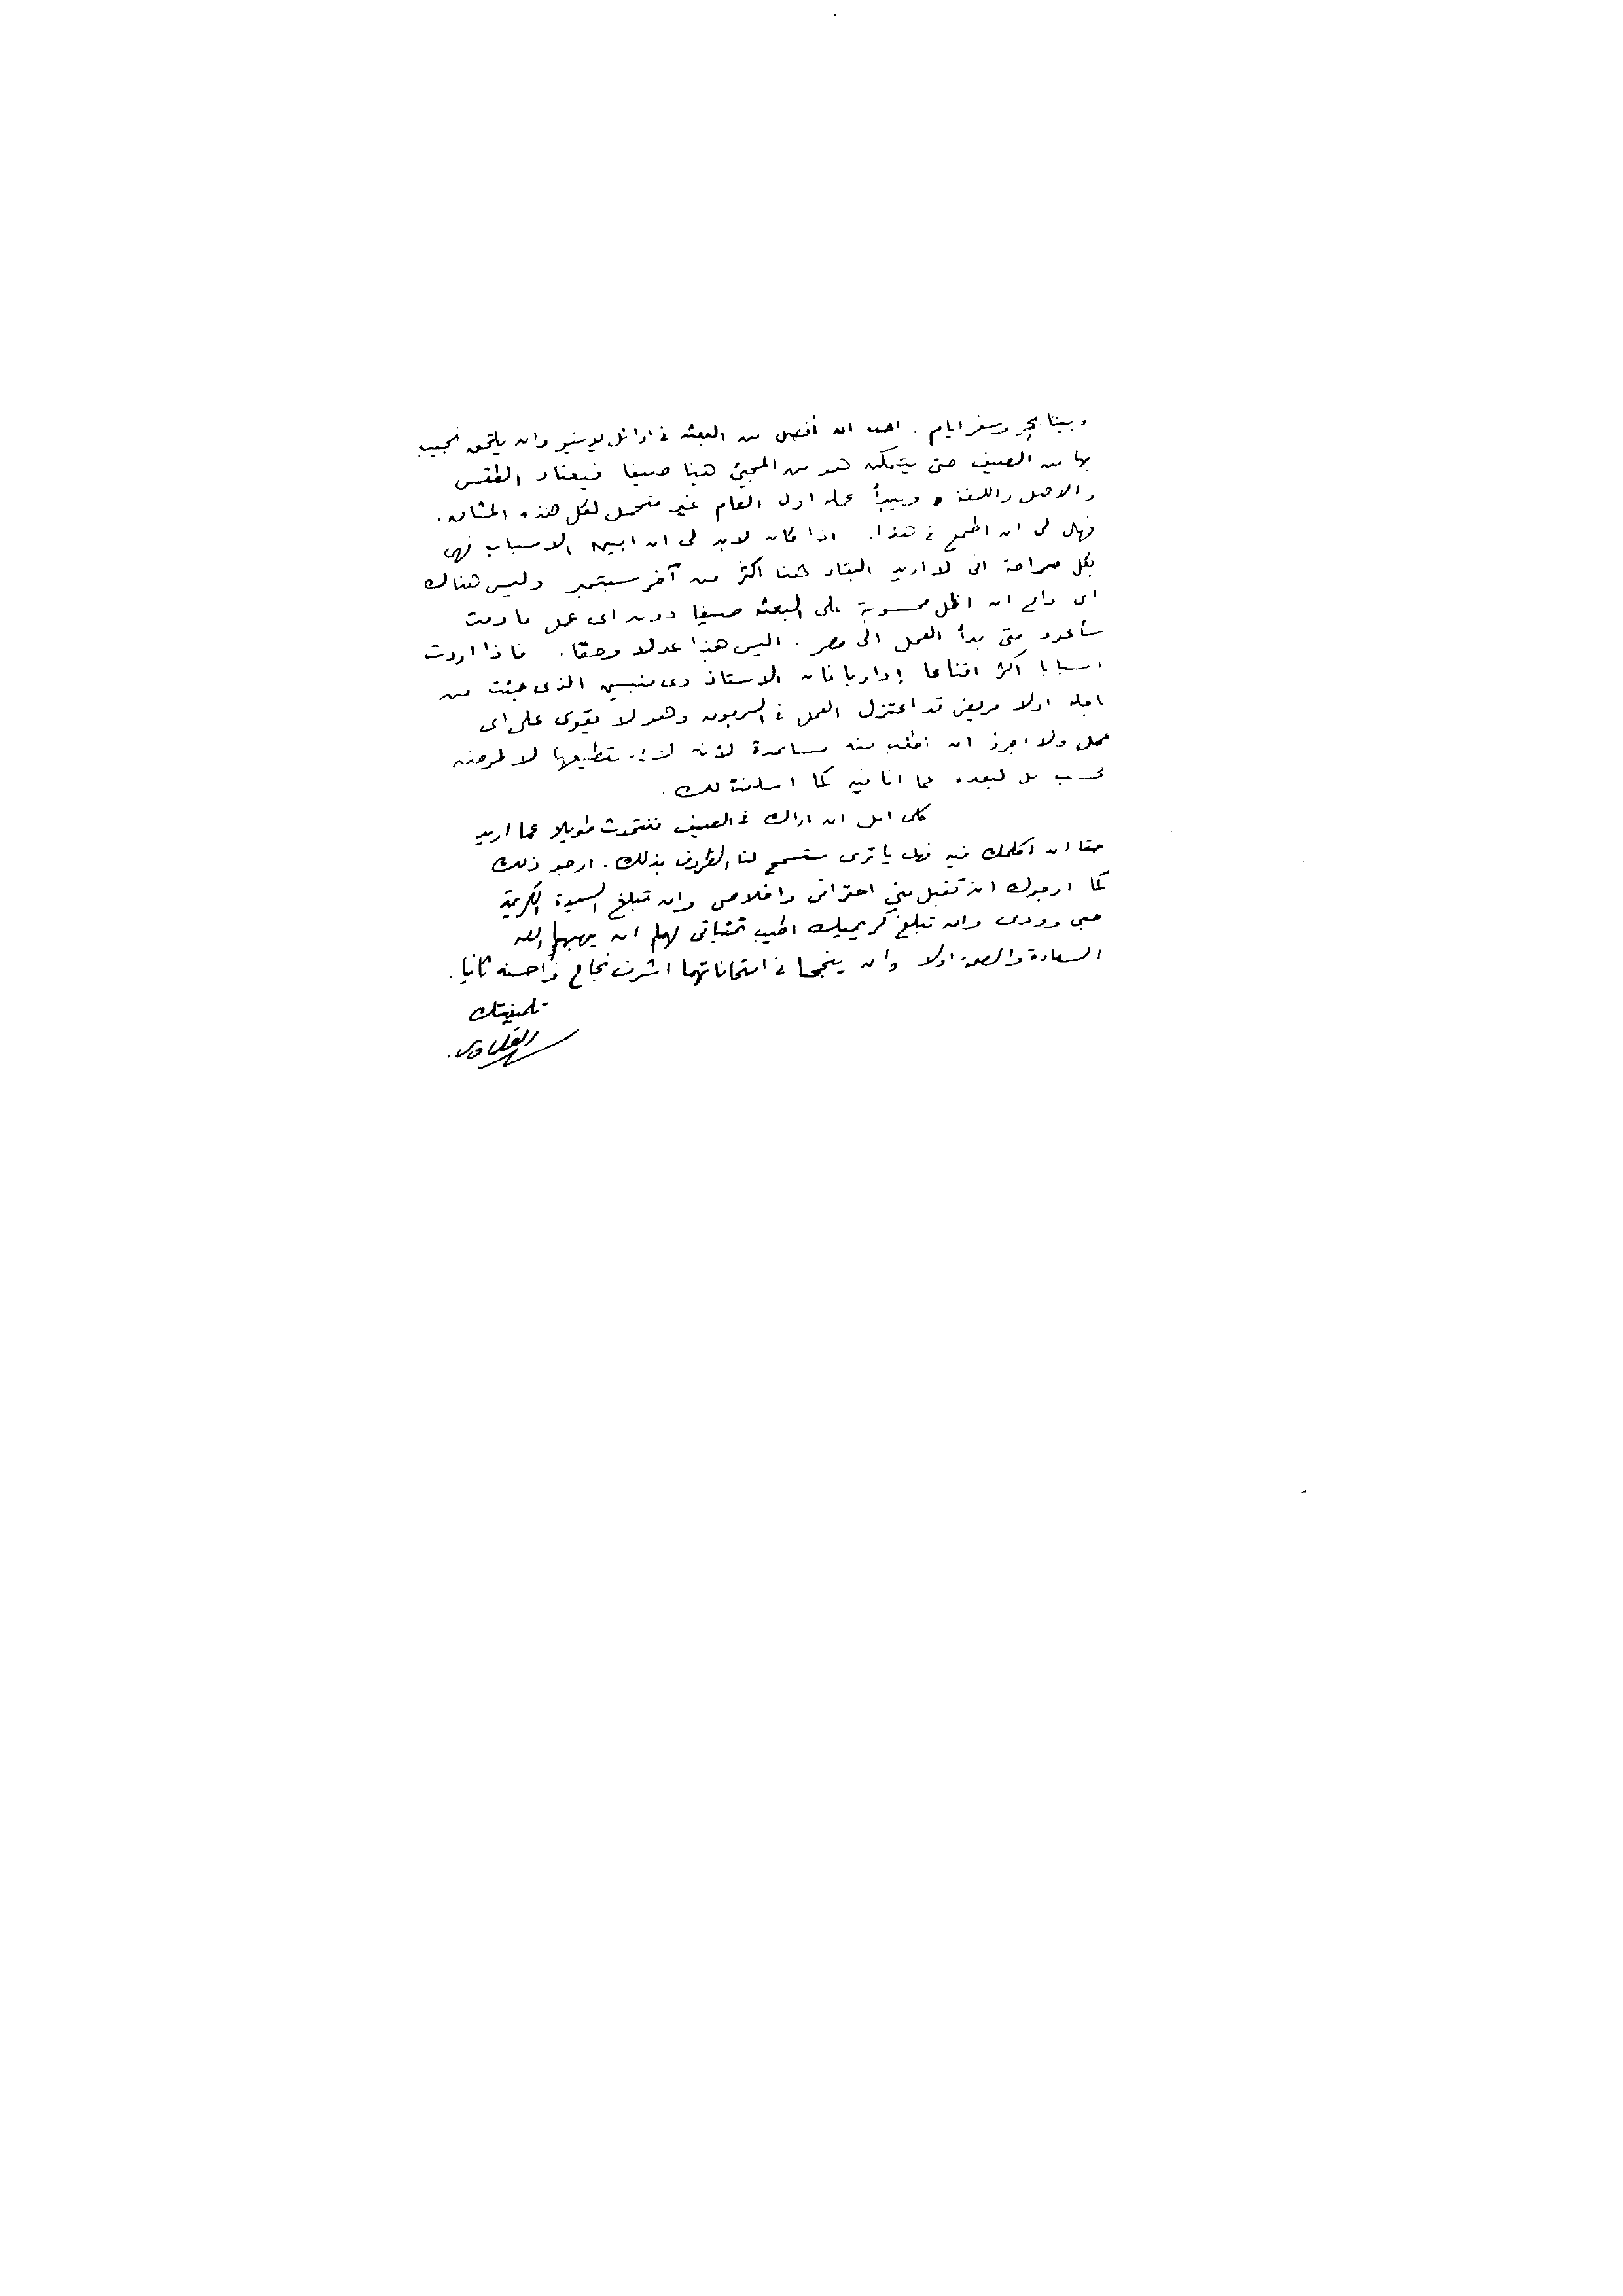 وبيننا بحر وسفر ايام . احب ان أفصل من البعثه فى اوائل يونيو وان يلتحق نجيب
بها من الصيف حتى يتمكن هو من المجيئ هنا صيفا فيعتاد الطقس
والاهل واللغة ويبدأ عمله اول العام غير متحمل لكل هذه المشاق .
فهل لى ان اطمع فى هذا . اذا كان لابد لى ان ابين الاسباب فهى
بكل صراحة انى لا اريد البقاء هنا اكثر من آخر سبتمبر وليس هناك
اى داع ان اظل محسوبة على البعثه صيفا دون اى عمل ما دمت
سأعود متى بدأ العمل الى مصر . اليس هذا عدلا وحقا . فاذا اردت
اسبابا اكثر اقناعا إداريا فان الاستاذ دى منبين الذى جئت من
اجله اولا مريض قد اعتزل العمل فى السربون وهو لا يقوى على اى
عمل ولا اجرؤ ان اطلب منه مساعدة لأنه لن يستطيعها لا لمرضه
فحسب بل لبعده عما انا فيه كما اسلفت لك .
كلى امل ان اراك فى الصيف فنتحدث طويلا عما اريد
حقا ان اكلمك فيه فهل يا ترى ستسمح لنا الظروف بذلك . ارجو ذلك
كما ارجوك ان تقبل منى احترامى واخلاصى وان تبلغ السيدة الكريمة
حبى وودى وان تبلغ كريميك اطيب تمنياتى لهما ان يهبهما الله
السعادة والصحة اولا وان ينجحا فى امتحاناتهما اشرف نجاح وأحسنه ثانيا .
تلميذتك
القلماوى .